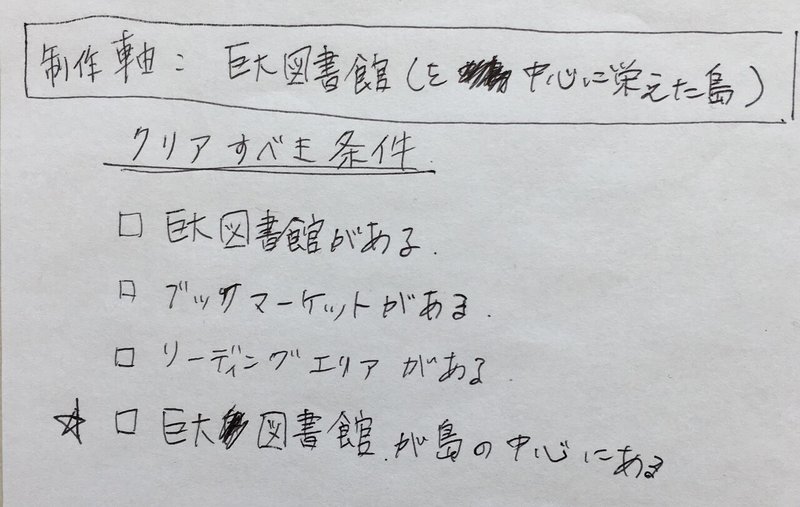 制作軸: 巨大図書館(を 中心に栄えた島)
クリアすべき条件.
□ 巨大図書館がある.
□ ブックマーケットがある.
□ リーディングエリアがある
☆ □ 巨大図書館が島の中心にある